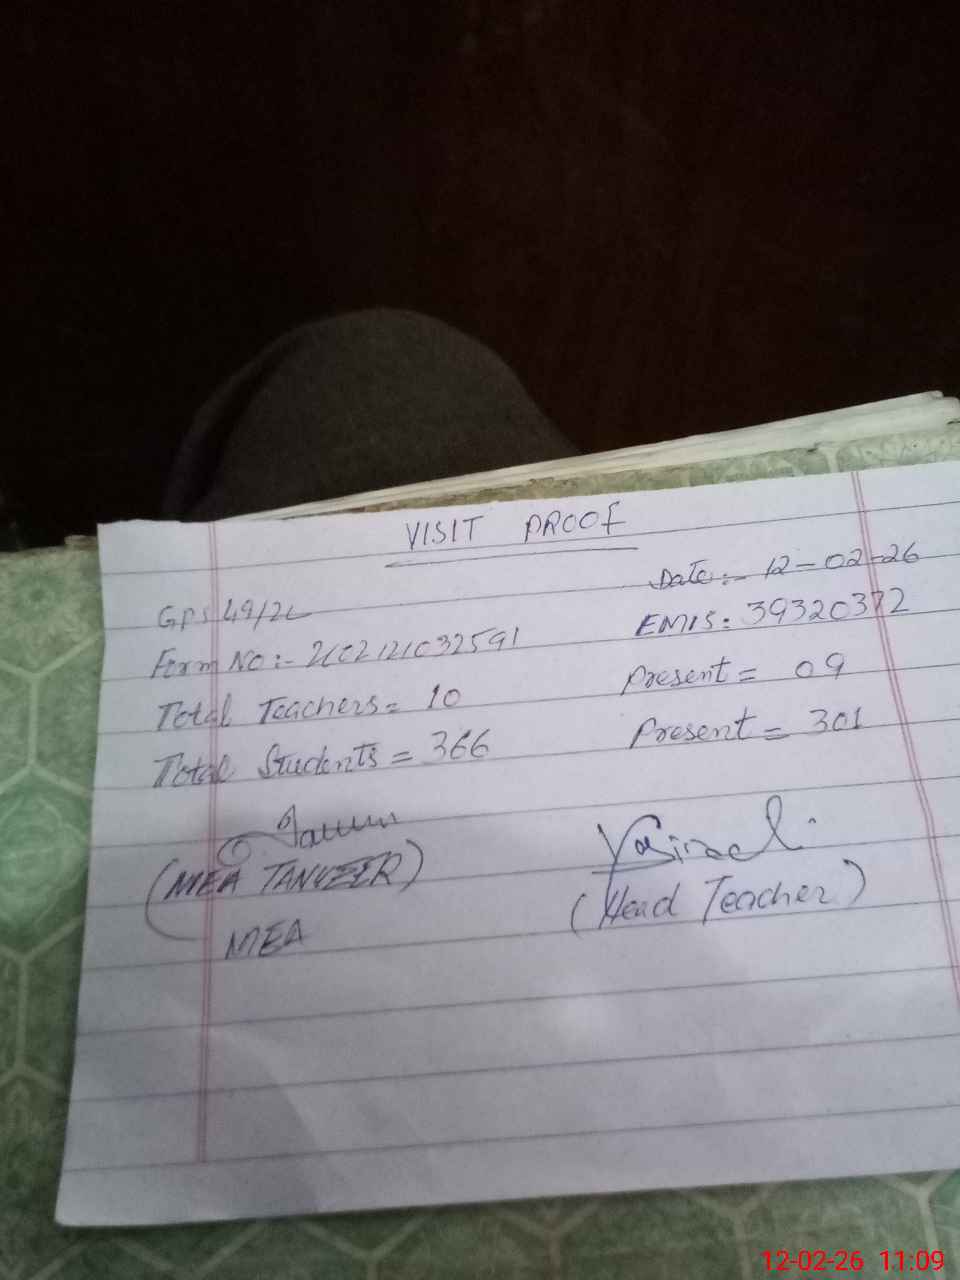 VISIT PROOF
Date:- 12-02-26
GPS 49/2L
EMIS: 39320372
Form No:- 202121032591
Total Teachers= 10
Present = 09
Total Students = 366
Present = 301
(MEA TANVEER)
(Head Teacher)
MEA
12-02-26 11:09